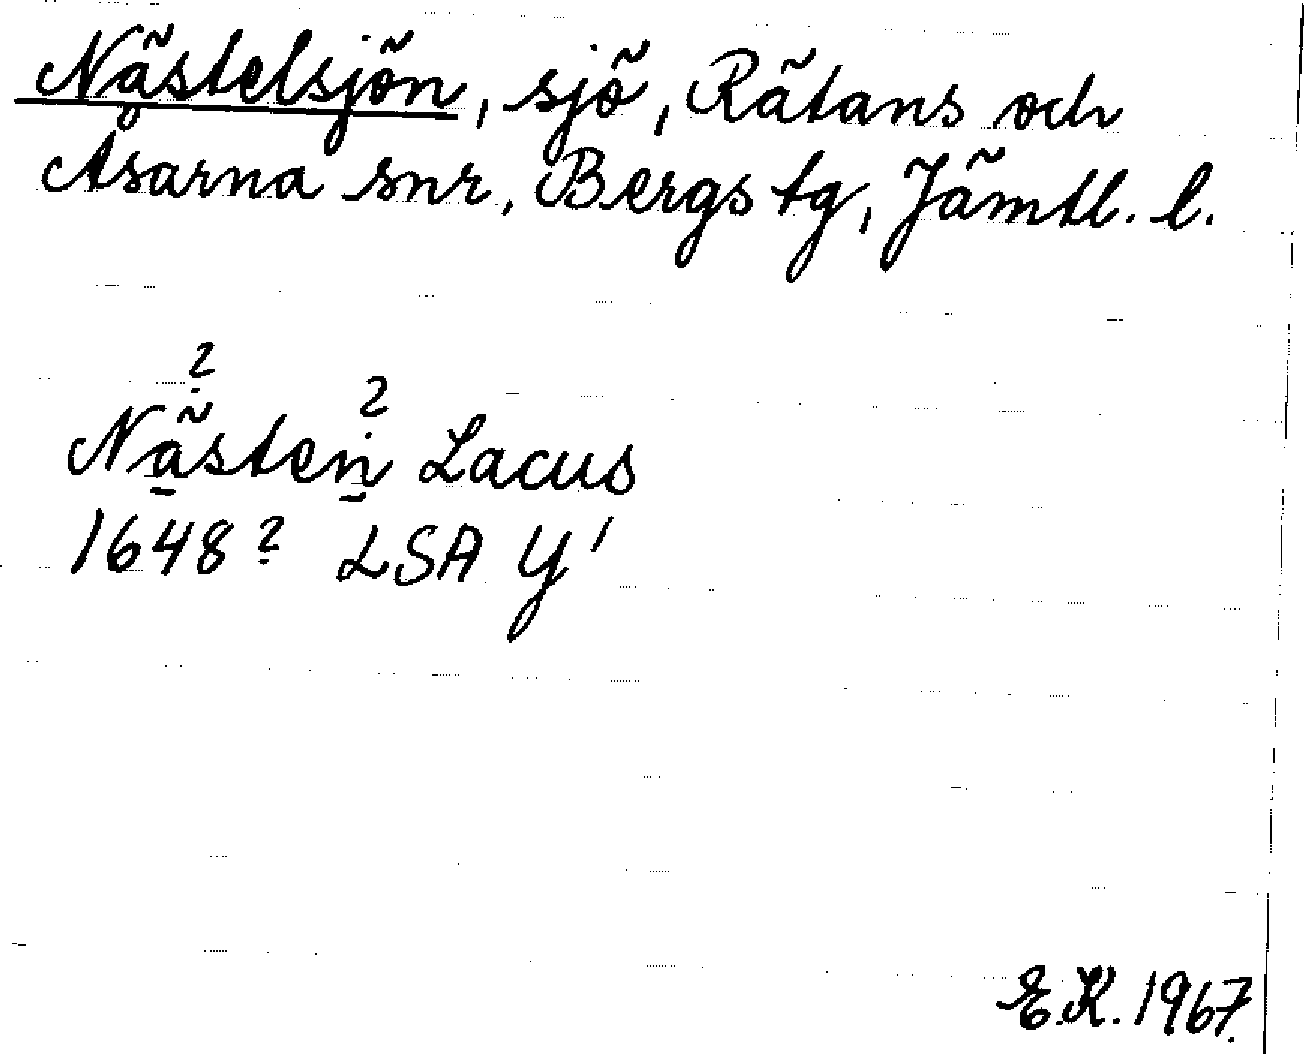 Nästelsjön, sjö, Rätans och
Åsarna snr, Bergs tg, Jämtl. l.
? ?
Nästen Lacus
1648? LSA Y1
E.K. 1967.